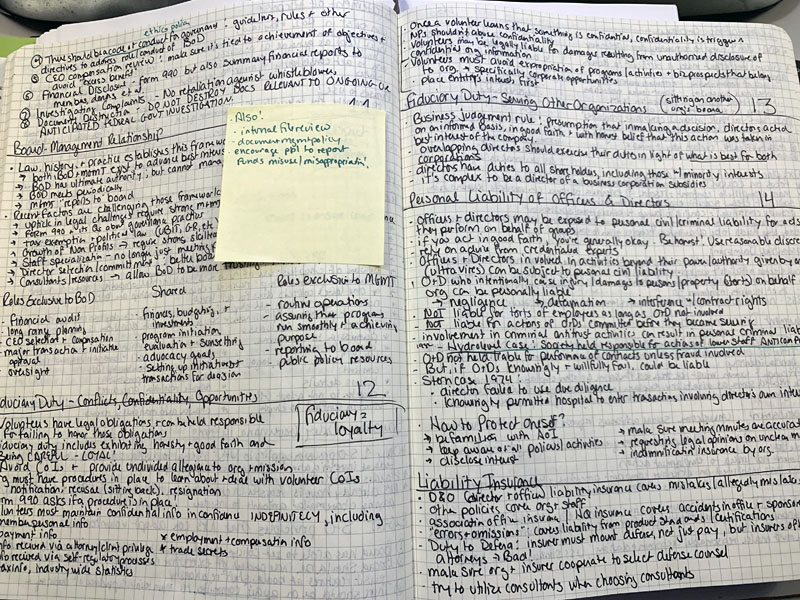 ethics policy
④ There should be a code of conduct for governance - guidelines, rules + other
directives to address role/conduct of BoD
⑤ CEO compensation review: make sure it's tied to achievement of objectives +
avoid "excess benefit"
⑥ Financial Disclosure: form 990 but also summary financial reports to
members, donors et al
⑦ Investigating Complaints - No retaliation against whistleblowers
⑧ Document Destruction: DO NOT DESTROY DOCS RELEVANT TO ONGOING OR
ANTICIPATED FEDERAL GOV'T INVESTIGATION.
Also!
• internal file review
• document mgmt policy
• encourage ppl to report
funds misuse/misappropriat'
11
Board-Management Relationship
• Law, history + practice establishes this framework
→ both BoD + mgmt exist to advance best interest
→ BoD has ultimate authority, but cannot manage
→ BoD meets periodically
→ mgmt reports to board
• Recent factors are challenging those frameworks
→ Uptick in legal challenges require strong mgmt
→ Form 990 + its Qs about governance practice
→ tax exemption + political law (UBIT, GR, etc)
→ Growth of Non Profits → require strong skilled
→ Staff specialization - no longer just meeting
→ Director selection/commitment → better board
→ Consultants/resources → allow BoD to be more trusting
Roles Exclusive to BoD
Shared
Roles exclusive to MGMT
Financial audit
long range planning
CEO selection + compensation
major transaction + initiative
approval
oversight
finances, budgeting, +
investments
program initiation
evaluation + sunsetting
advocacy goals
setting up initiatives +
transactions for decision
- routine operations
- assuring that programs
run smoothly + achieving
purpose
- reporting to board
- public policy resources
12
Fiduciary Duty - Conflicts, Confidentiality, Opportunities
Fiduciary =
loyalty
Volunteers have legal obligations + can be held responsible
for failing to honor those obligations
Fiduciary duty includes exhibiting honesty + good faith and
Being CAREFUL - LOYAL!
Avoid CoIs + provide undivided allegiance to org + mission
Org must have procedures in place to learn about + deal with volunteer CoIs
notification, recusal (sitting back), resignation
Form 990 asks if a procedure is in place
Volunteers must maintain confidential info in confidence INDEFINITELY, including
member personal info
payment info
* employment + compensation info
info received via attorney/client privilege
* trade secrets
info received via self-regulatory processes
tax info, industry wide statistics
Once a volunteer learns that something is confidential, confidentiality is triggered
NPs shouldn't abuse confidentiality
Volunteers may be legally liable for damages resulting from unauthorized disclosure of
confidential org information
Volunteers must avoid expropriation of programs/activities + biz prospects that belong
to org → specifically corporate opportunities
Place entity's needs first
Fiduciary Duty - Serving Other Organizations (sitting on another org's board)
13
• Business judgement rule: presumption that in making a decision, directors acted
on an informed basis, in good faith + with honest belief that this action was taken in
best interest of the company
• Overlapping directors should exercise their duties in light of what is best for both
corporations
• directors have duties to all shareholders, including those w/ minority interests
it's complex to be a director of a business corporation subsidiaries
Personal Liability of Officers & Directors
14
• Officers + directors may be exposed to personal civil/criminal liability for acts
they perform on behalf of groups
• if you act in good faith, you're generally okay. Be honest! Use reasonable discretion
rely on advice from credentialed experts
• Officers + Directors involved in activities beyond their power/authority given by org
(ultra vires) can be subject to personal civil liability.
• O+D who intentionally cause injury/damages to persons/property (torts) on behalf of
org can be personally liable
→ negligence → defamation → interference w/ contract rights
• Not liable for torts of employees as long as O+D not involved
• Not liable for actions of O+Ds committed before they became serving
• involvement in criminal antitrust activities can result in personal criminal liability
→ Hydrolevel Case: Society held responsible for actions of lower staff ANTICOMP
• O+D not held liable for performance of contracts unless fraud involved
- But, if O+Ds knowingly + willfully fail, could be liable
• Stern case 1974:
• director failed to use due diligence
• knowingly permitted hospital to enter transaction involving director's own interest
• How to Protect Onself?
→ be familiar with AoI
→ make sure meeting minutes are accurate
→ keep aware of all policies/activities
→ requesting legal opinions on unclear matters
→ disclose interest
→ indemnification insurance by org.
Liability Insurance
• D&O (Director + officer) liability insurance covers mistakes (allegedly mistakes
• other policies cover org + staff
• association office insurance | NA insurance covers accidents in office + sponsor
• "errors + omissions": covers liability from product standards/certifications
• Duty to Defend: insurer must mount defense, not just pay, but insurers often
attorneys → Bad!
• make sure org + insurer cooperate to select defense counsel
- try to utilize consultants when choosing consultants